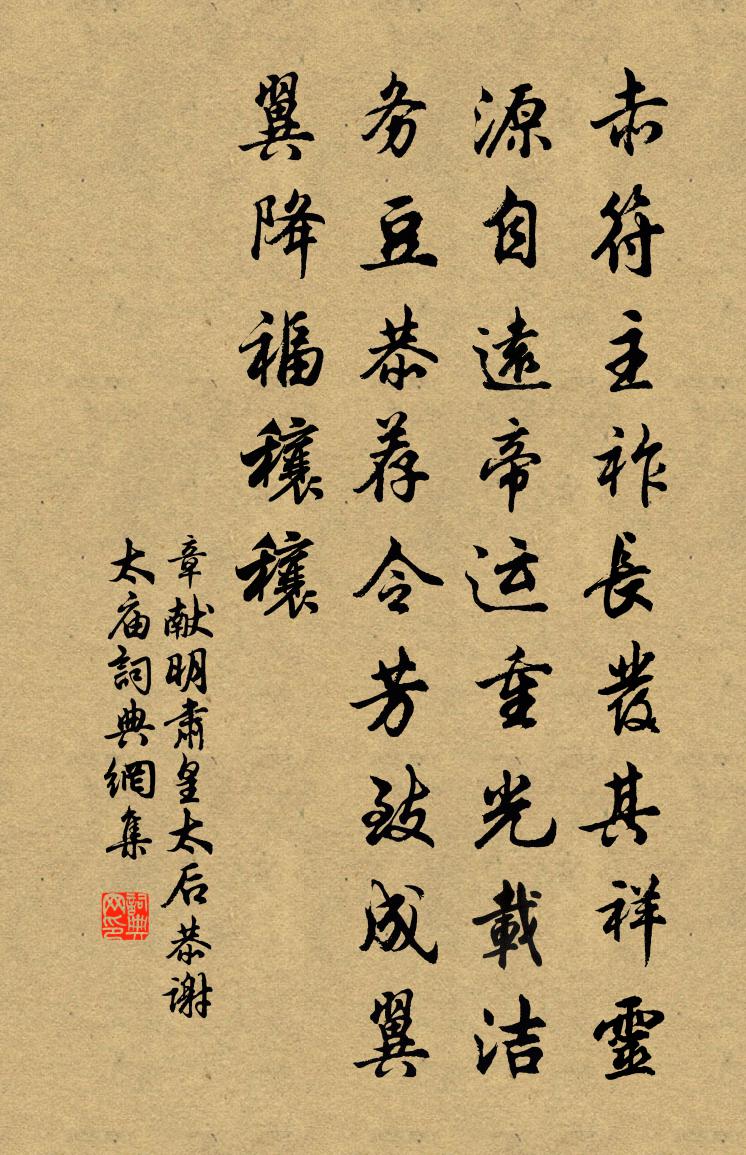 赤符主祚長發其祥靈
源自遠帝运重光載洁
务豆恭荐令芳致成翼
翼降福穰穰
章献明肅皇太后恭謝
太庙詞典網集
詞典网印